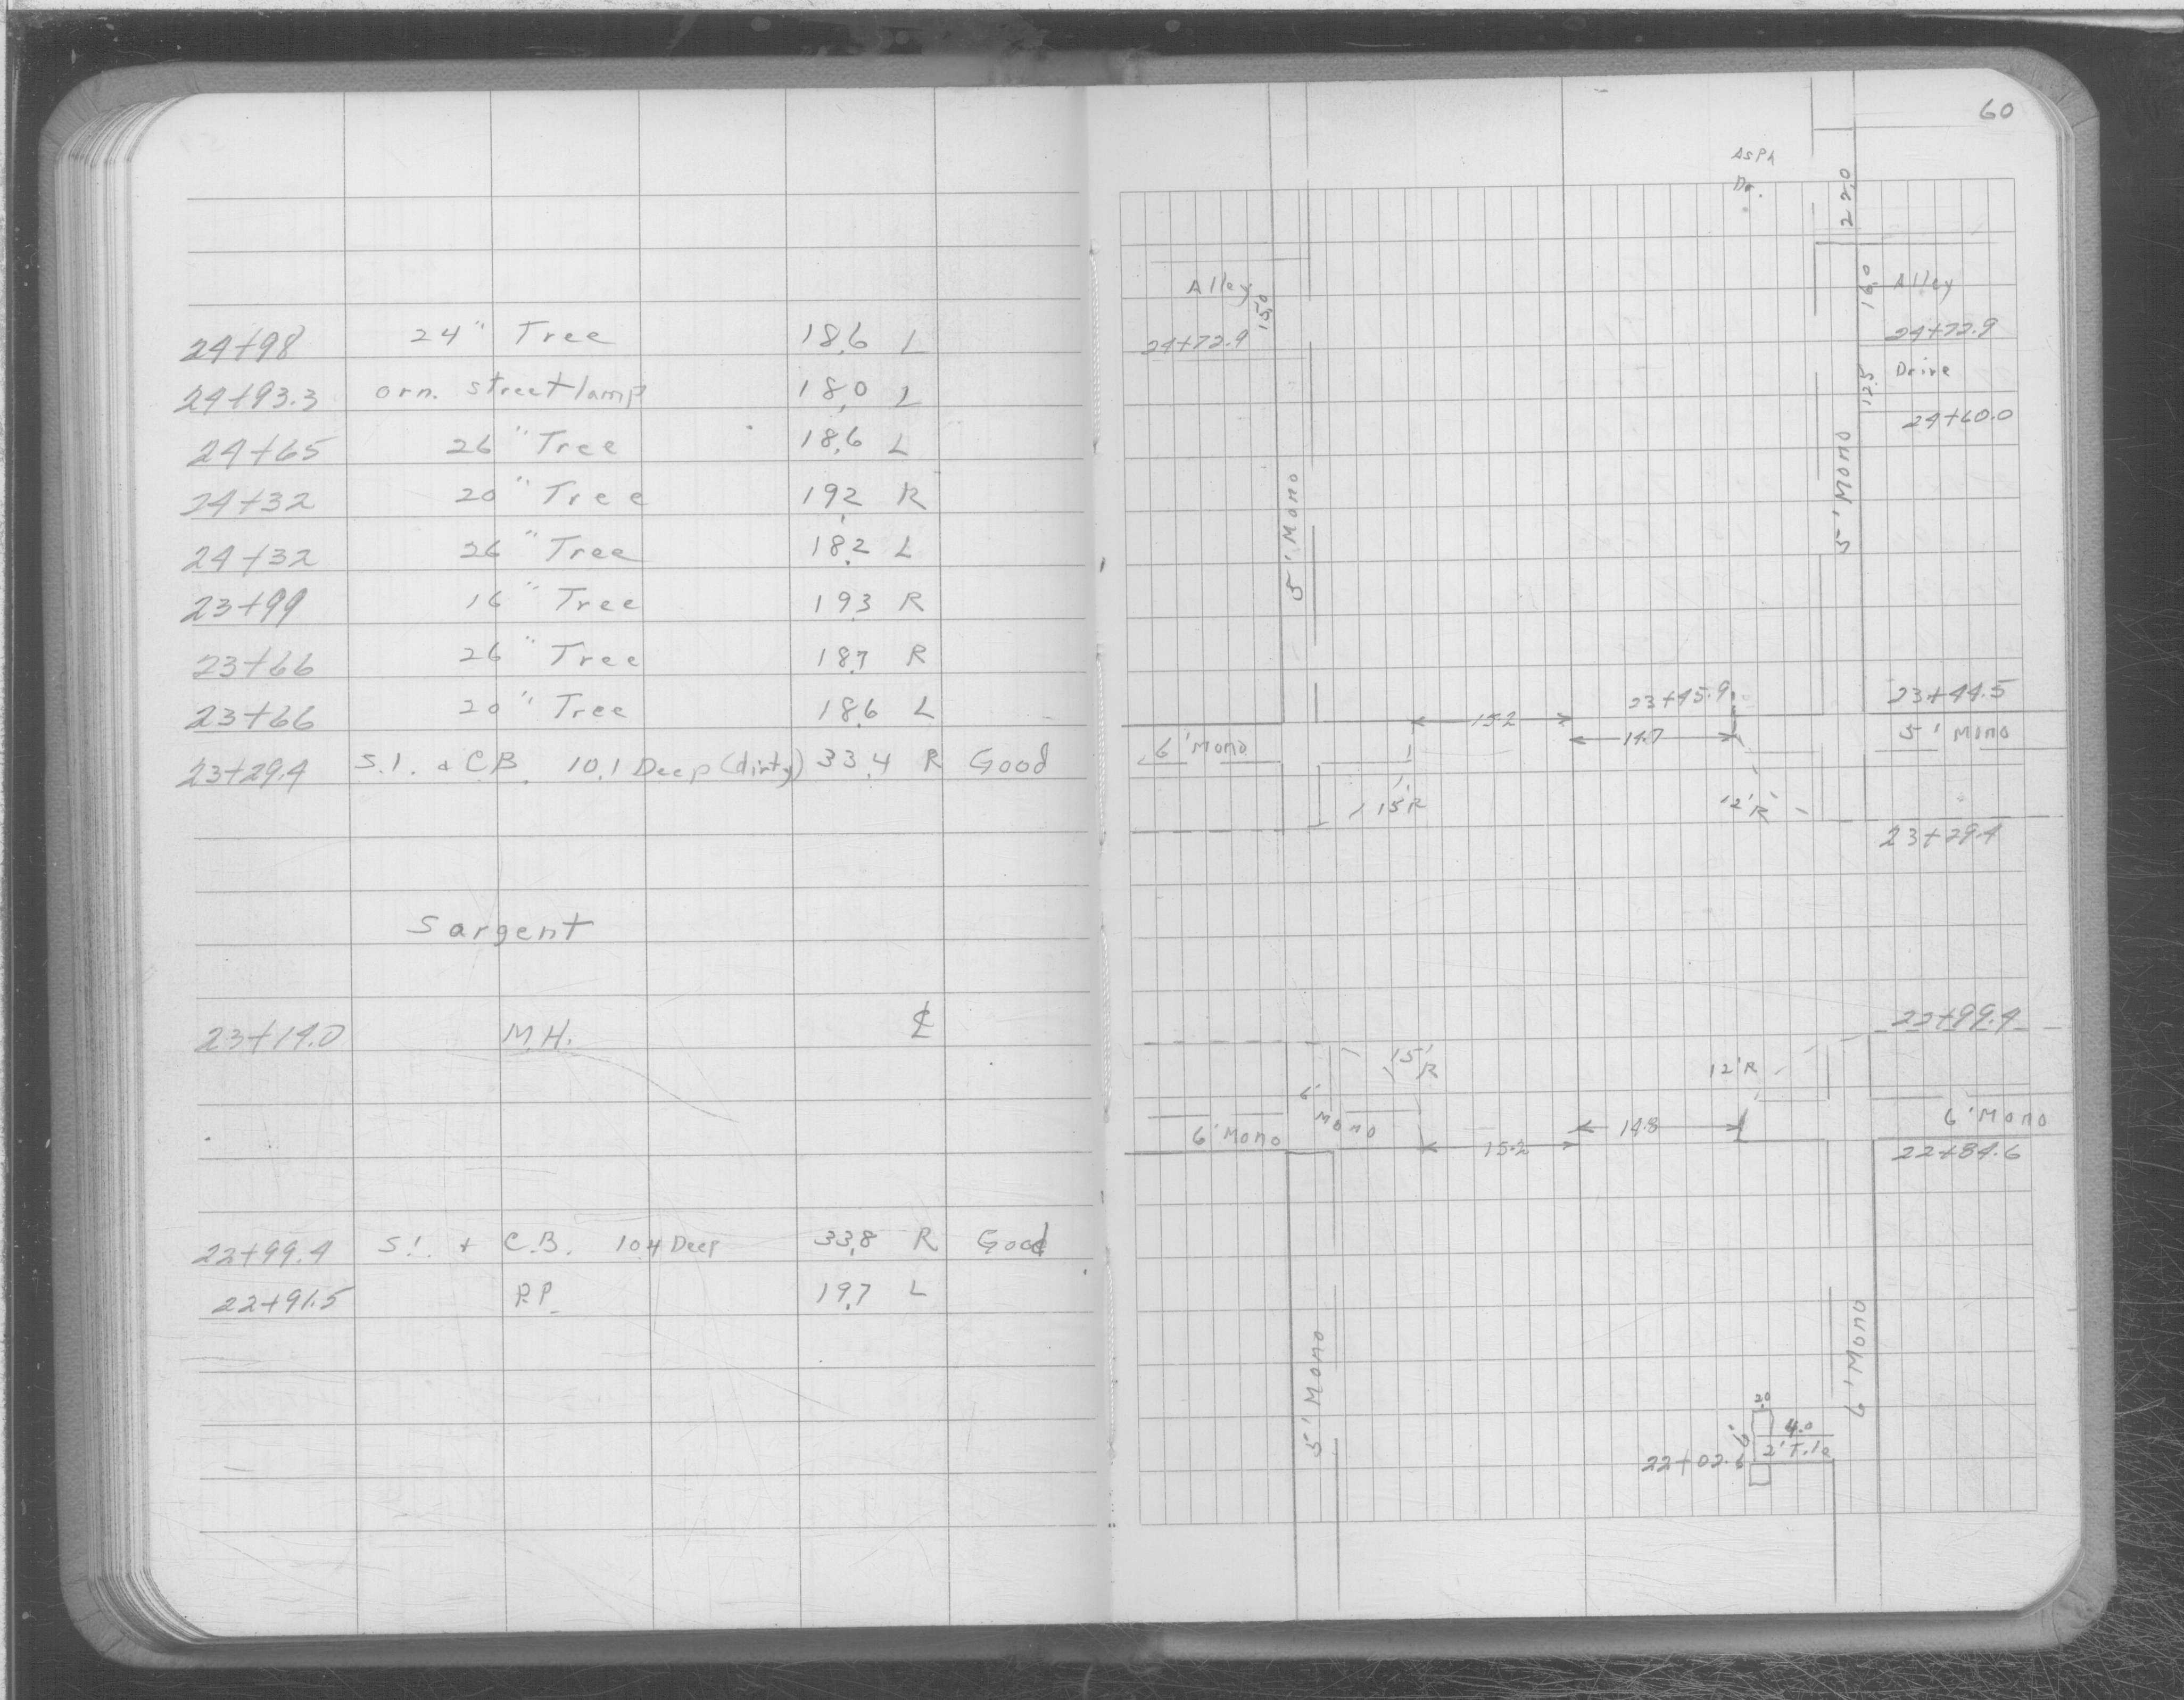 24+98 24" Tree 18.6 L
24+93.3 orn. streetlamp 18.0 L
24+65 26" Tree 18.6 L
24+32 20" Tree 19.2 R
24+32 26" Tree 18.2 L
23+99 16" Tree 19.3 R
23+66 26" Tree 18.7 R
23+66 20" Tree 18.6 L
23+29.4 S.I. & C.B. 10.1 Deep (dirty) 33.4 R Good
Sargent
23+14.0 M.H. ℄
22+99.4 S.I. & C.B. 10.4 Deep 33.8 R Good
22+91.5 P.P. 19.7 L
60
Asph
Dr.
22.0
Alley 15.0
16.0 Alley
24+72.9
24+72.9
12.5 Drive
24+60.0
5' Mono
5' Mono
23+45.9
23+44.5
15.2
14.7
6' Mono
5' Mono
15'R
12'R
23+29.4
22+99.4
15'R
12'R
6'
Mono
6' Mono
6' Mono
15.2
14.8
22+84.6
5' Mono
6' Mono
2.0
6'
4.0
2' Tile
22+02.6